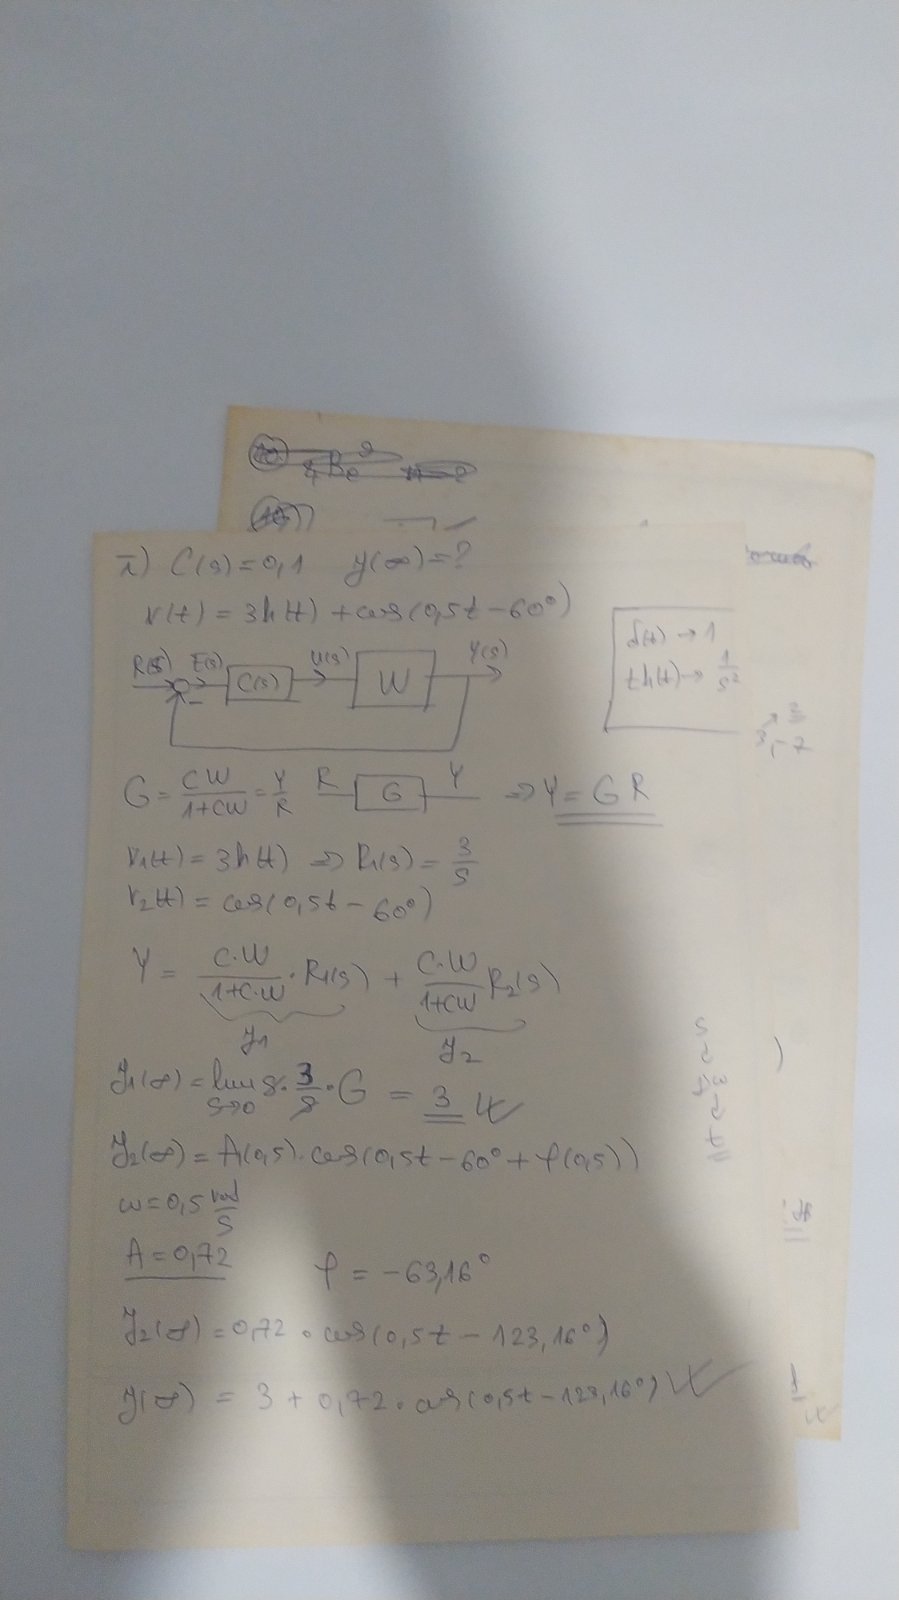 C(s)=0,1 y(∞)=?
r(t) = 3h(t) + cos(0,5t-60°)
δ(t) → 1
th(t) → 1/s²
R(s) E(s) C(s) U(s) W Y(s)
-
G = CW/(1+CW) = Y/R R G Y ⇒ Y = GR
r1(t) = 3h(t) ⇒ R1(s) = 3/s
r2(t) = cos(0,5t - 60°)
Y = C·W/(1+C·W) · R1(s) + C·W/(1+CW) R2(s)
y1 y2
y1(∞) = lim s→0 s · 3/s · G = 3
y2(∞) = A(0,5) · cos(0,5t - 60° + φ(0,5))
ω = 0,5 rad/s
A = 0,72 φ = -63,16°
y2(∞) = 0,72 · cos(0,5t - 123,16°)
y(∞) = 3 + 0,72 · cos(0,5t - 123,16°)